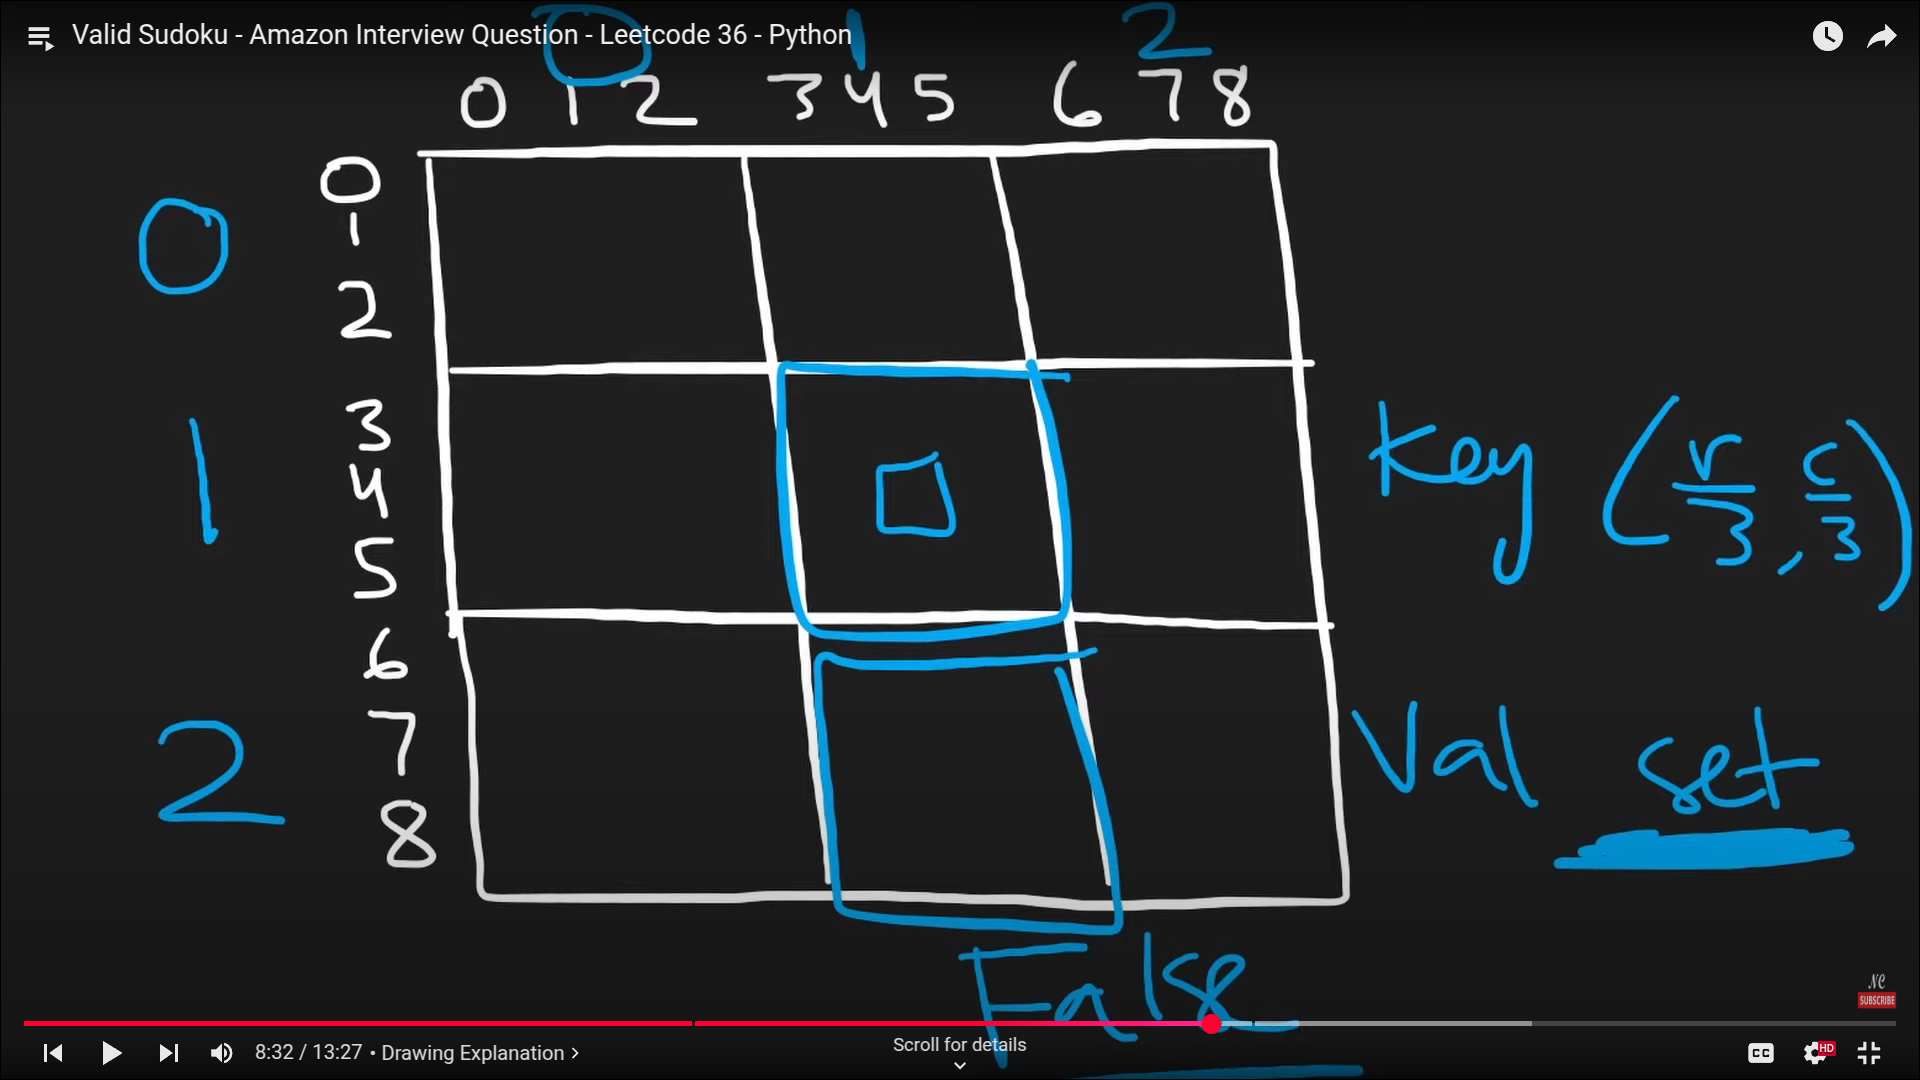 Valid Sudoku - Amazon Interview Question - Leetcode 36 - Python
0 1 2
0 1 2 3 4 5 6 7 8
0
1
2
0
1
2
3
4
5
6
7
8
Key (r/3, c/3)
Val set
False
NC
SUBSCRIBE
8:32 / 13:27 • Drawing Explanation >
Scroll for details
CC
HD